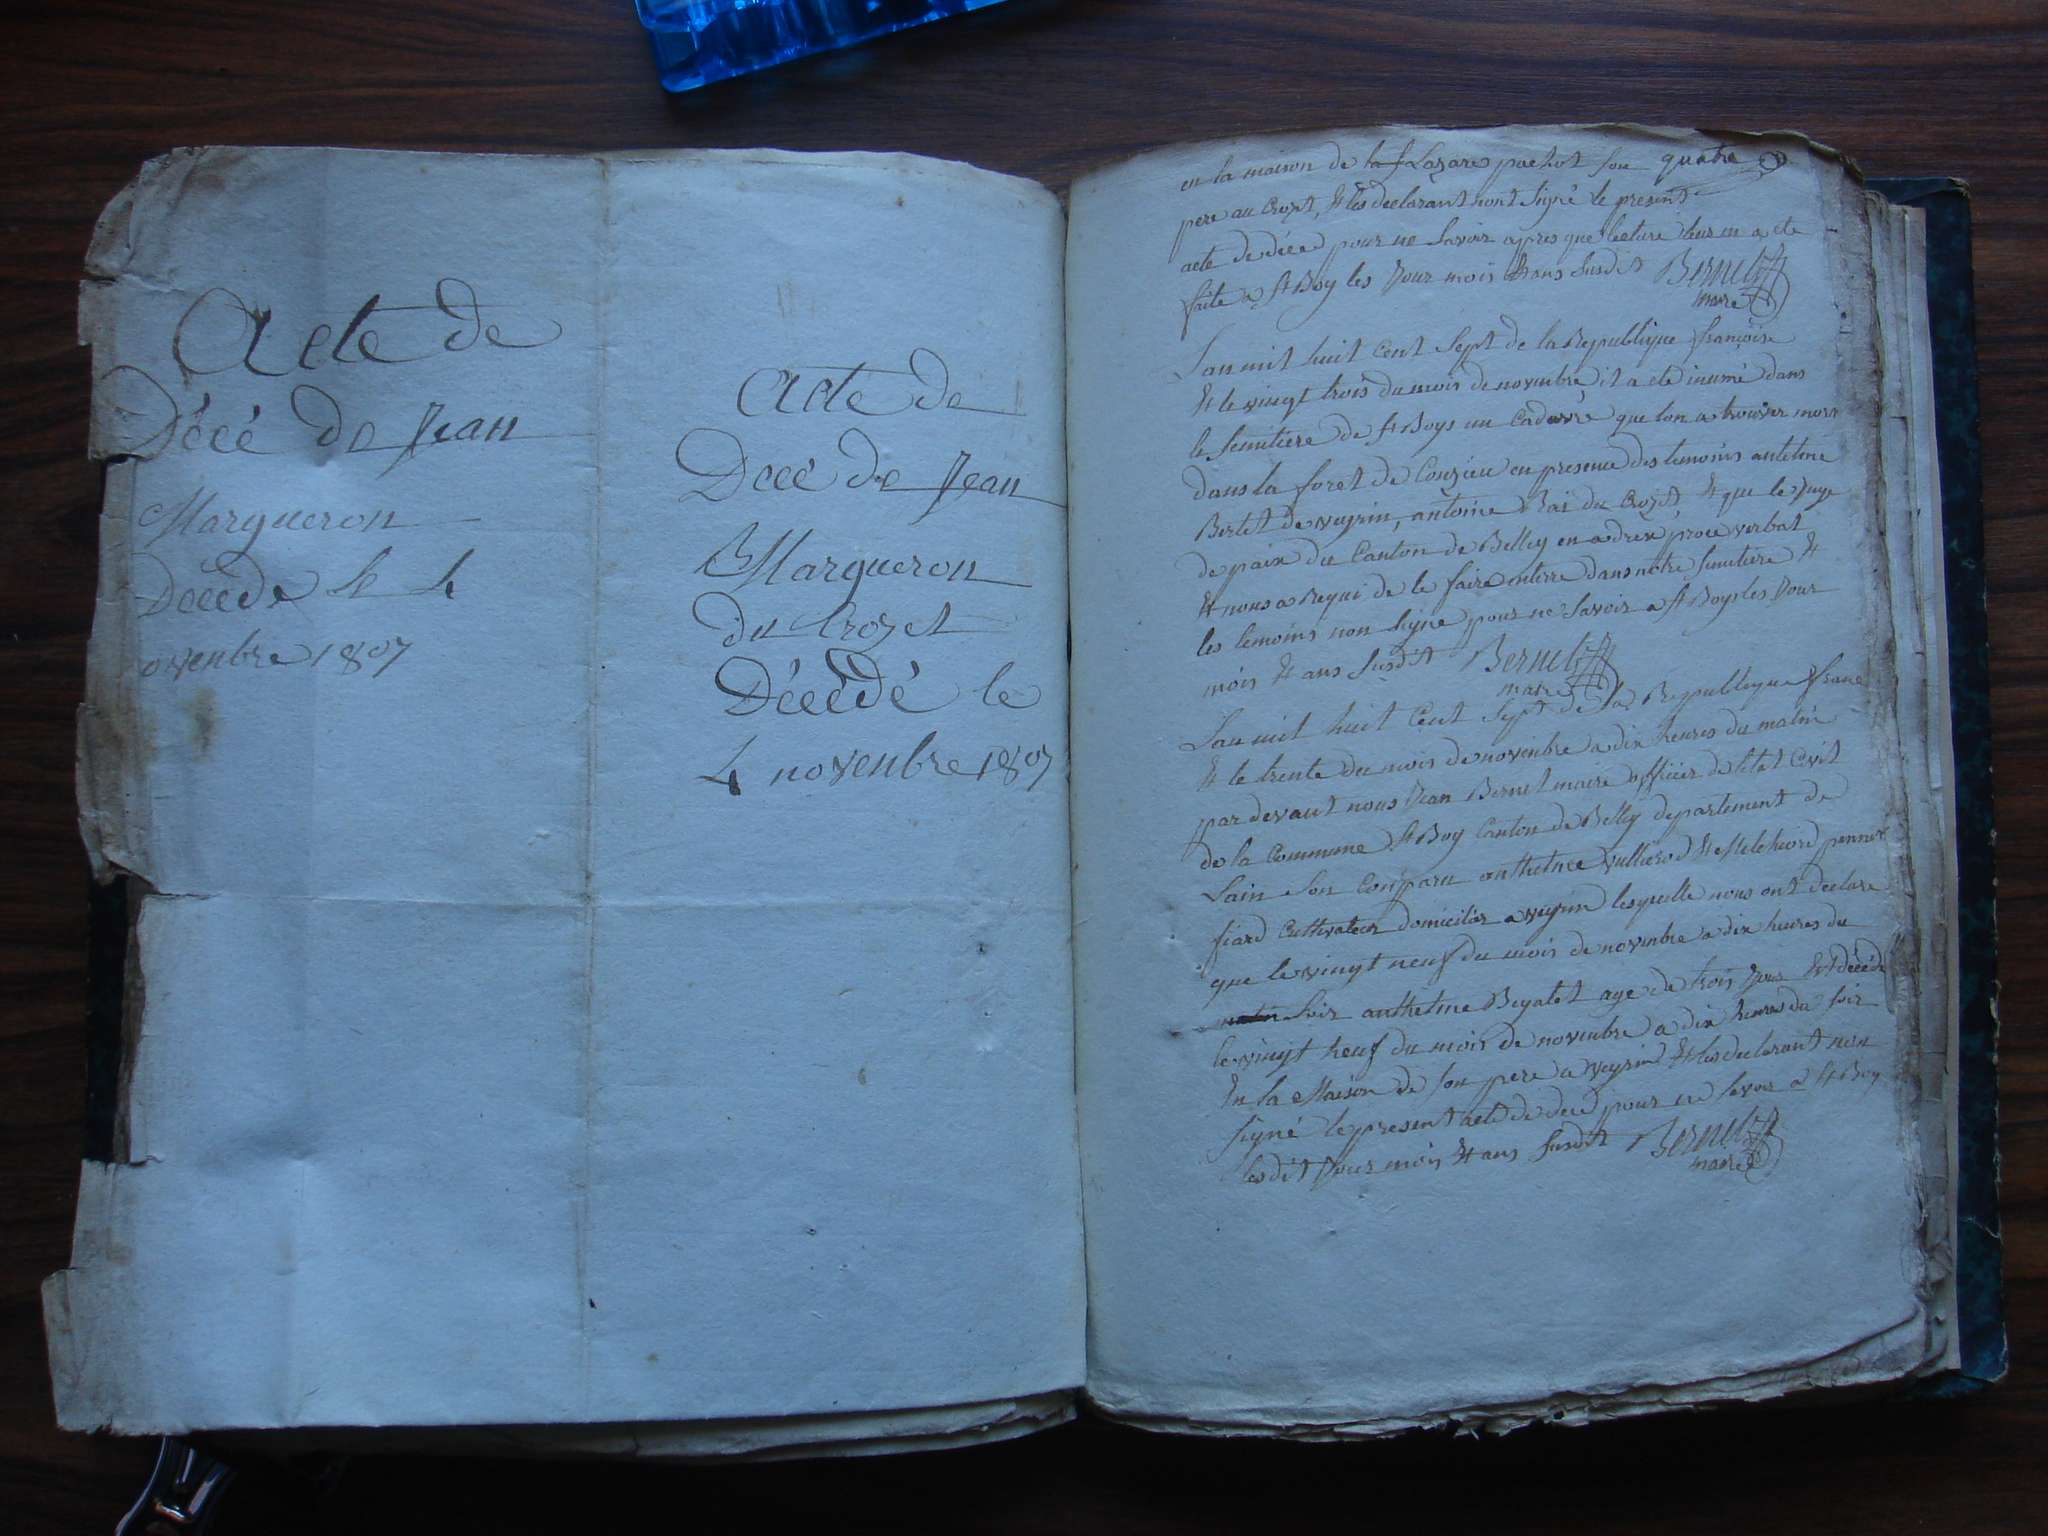 Acte de
Décé de Jean
Margueron
Décéde le 4
ovenbre 1807
Acte de
Décé de Jean
Margueron
du Crozet
Décédé le
4 novenbre 1807
en la maison de Lazare pachot son quatre
pere au Crozet, & les declarant nont Signé le present
acte de décé pour ne Savoir apres que lecture leur en a ete
faite a St Boy les Jour mois & ans Susdit Bernet
maire
Lan mil huit Cent Sept de la Republique françoise
& le vingt trois du mois de novenbre il a ete inumé dans
le Semitiere de St Boys un Cadavre que lon a trouver mort
dans la foret de Conzieu en presence des temoins antelme
Bertet de veyrin, antoine Rai du Crozet & que le Juge
de paix du Canton de Belley en a procé verbal
& nous a Requi de le faire enterre dans notre Semitiere &
les temoins non Signe pour ne Savoir a St Boys les Jour
mois & ans Susdit Bernet
maire
Lan mil huit Cent Sept de la Republique franc
& le trente du mois de novenbre a dix heures du matin
par devant nous Jean Bernet maire officier de letat Civil
de la Commune St Boy Canton de Belley departement de
Lain Son Conparu anthelme vullierod & Melchiord pennet
fiard Cultivateur domicilier a veyrin lesquelle nous ont declare
que le vingt neuf du mois de novenbre a dix heures du
matin Soir anthelme Beyatet age de trois Jour Est décéde
le vingt neuf du mois de novenbre a dix heures du Soir
En la Maison de Son pere a veyrin & les declarant non
Signé le present acte de décé pour ne Savoir a St Boy
les dit Jour mois & ans Susdit Bernet
maire